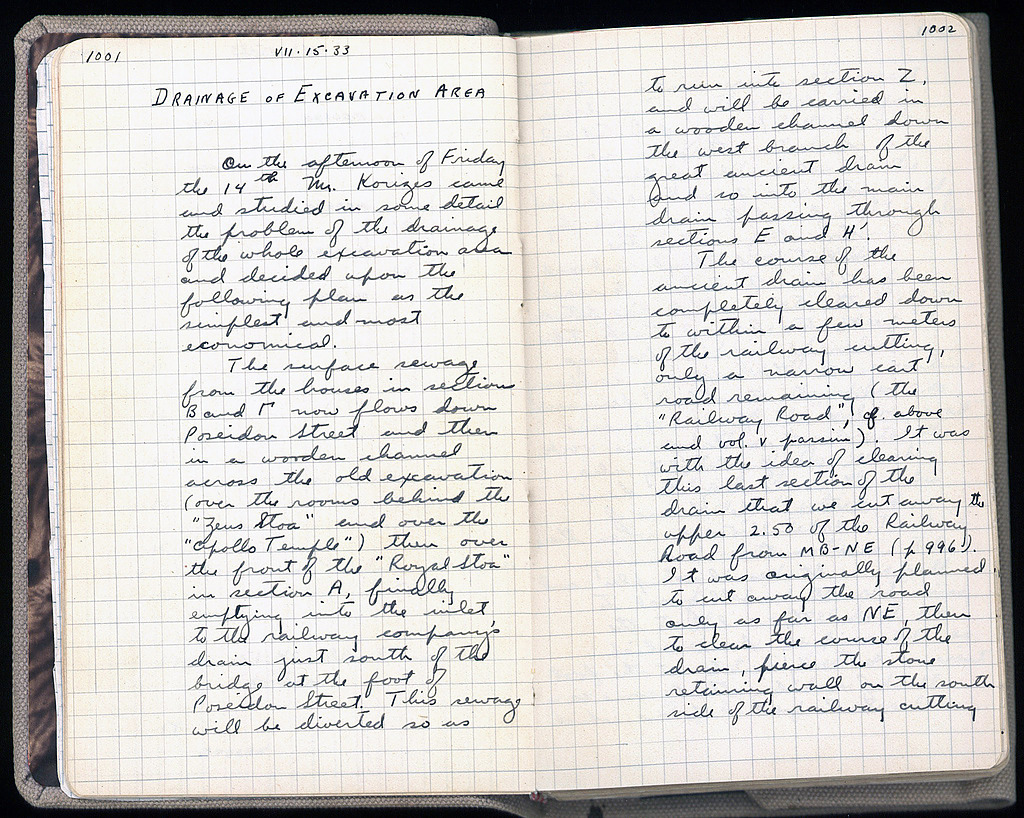 1001
VII·15·33
DRAINAGE OF EXCAVATION AREA
On the afternoon of Friday
the 14th Mr. Korizes came
and studied in some detail
the problem of the drainage
of the whole excavation area
and decided upon the
following plan as the
simplest and most
economical.
The surface sewage
from the houses in section
B and Γ now flows down
Poseidon Street and then
in a wooden channel
across the old excavation
(over the rooms behind the
"Zeus Stoa" and over the
"Apollo Temple") then over
the front of the "Royal Stoa"
in section A, finally
emptying into the inlet
to the railway company's
drain just south of the
bridge at the foot of
Poseidon Street. This sewage
will be diverted so as
1002
to run into section Z,
and will be carried in
a wooden channel down
the west branch of the
great ancient drain
and so into the main
drain passing through
sections E and H'.
The course of the
ancient drain has been
completely cleared down
to within a few meters
of the railway cutting,
only a narrow cart
road remaining (the
"Railway Road", cf. above
and vol. V passim). It was
with the idea of clearing
this last section of the
drain that we cut away the
upper 2.50 of the Railway
Road from MB-NE (p 996).
It was originally planned
to cut away the road
only as far as NE, then
to clear the course of the
drain, pierce the stone
retaining wall on the south
side of the railway cutting